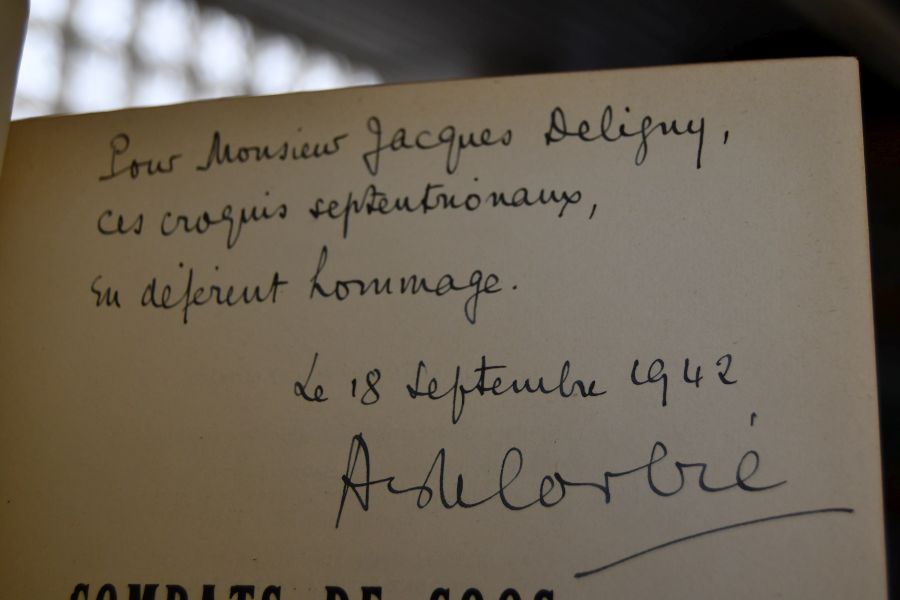 Pour Monsieur Jacques Deligny,
ces croquis septentrionaux,
En déférent hommage.
Le 18 Septembre 1942
COMBATS DE COQS